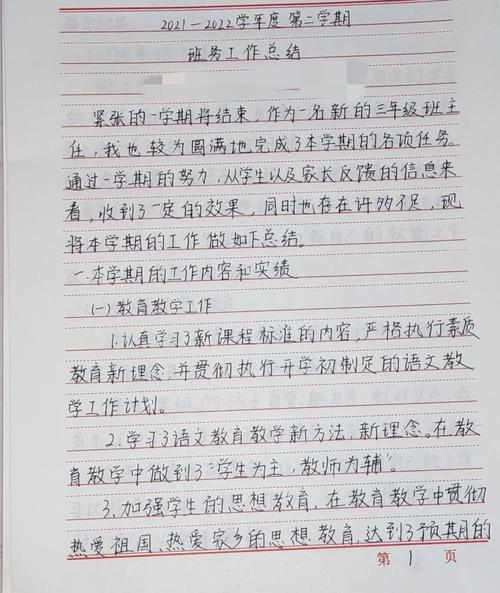 2021-2022学年度 第二学期
班务工作总结
紧张的一学期将结束，作为一名新的三年级班主
任，我也较为圆满地完成了本学期的各项任务。
通过一学期的努力，从学生以及家长反馈的信息来
看，收到了一定的效果，同时也存在许多不足，现
将本学期的工作做如下总结。
一.本学期的工作内容和实绩
(一)教育教学工作
1.认真学习了新课程标准的内容，严格执行素质
教育新理念，并贯彻执行开学初制定的语文教
学工作计划。
2.学习了语文教育教学新方法，新理念。在教
育教学中做到了“学生为主，教师为辅”。
3.加强学生的思想教育，在教育教学中贯彻
热爱祖国、热爱家乡的思想教育，达到了预期的
第 1 页